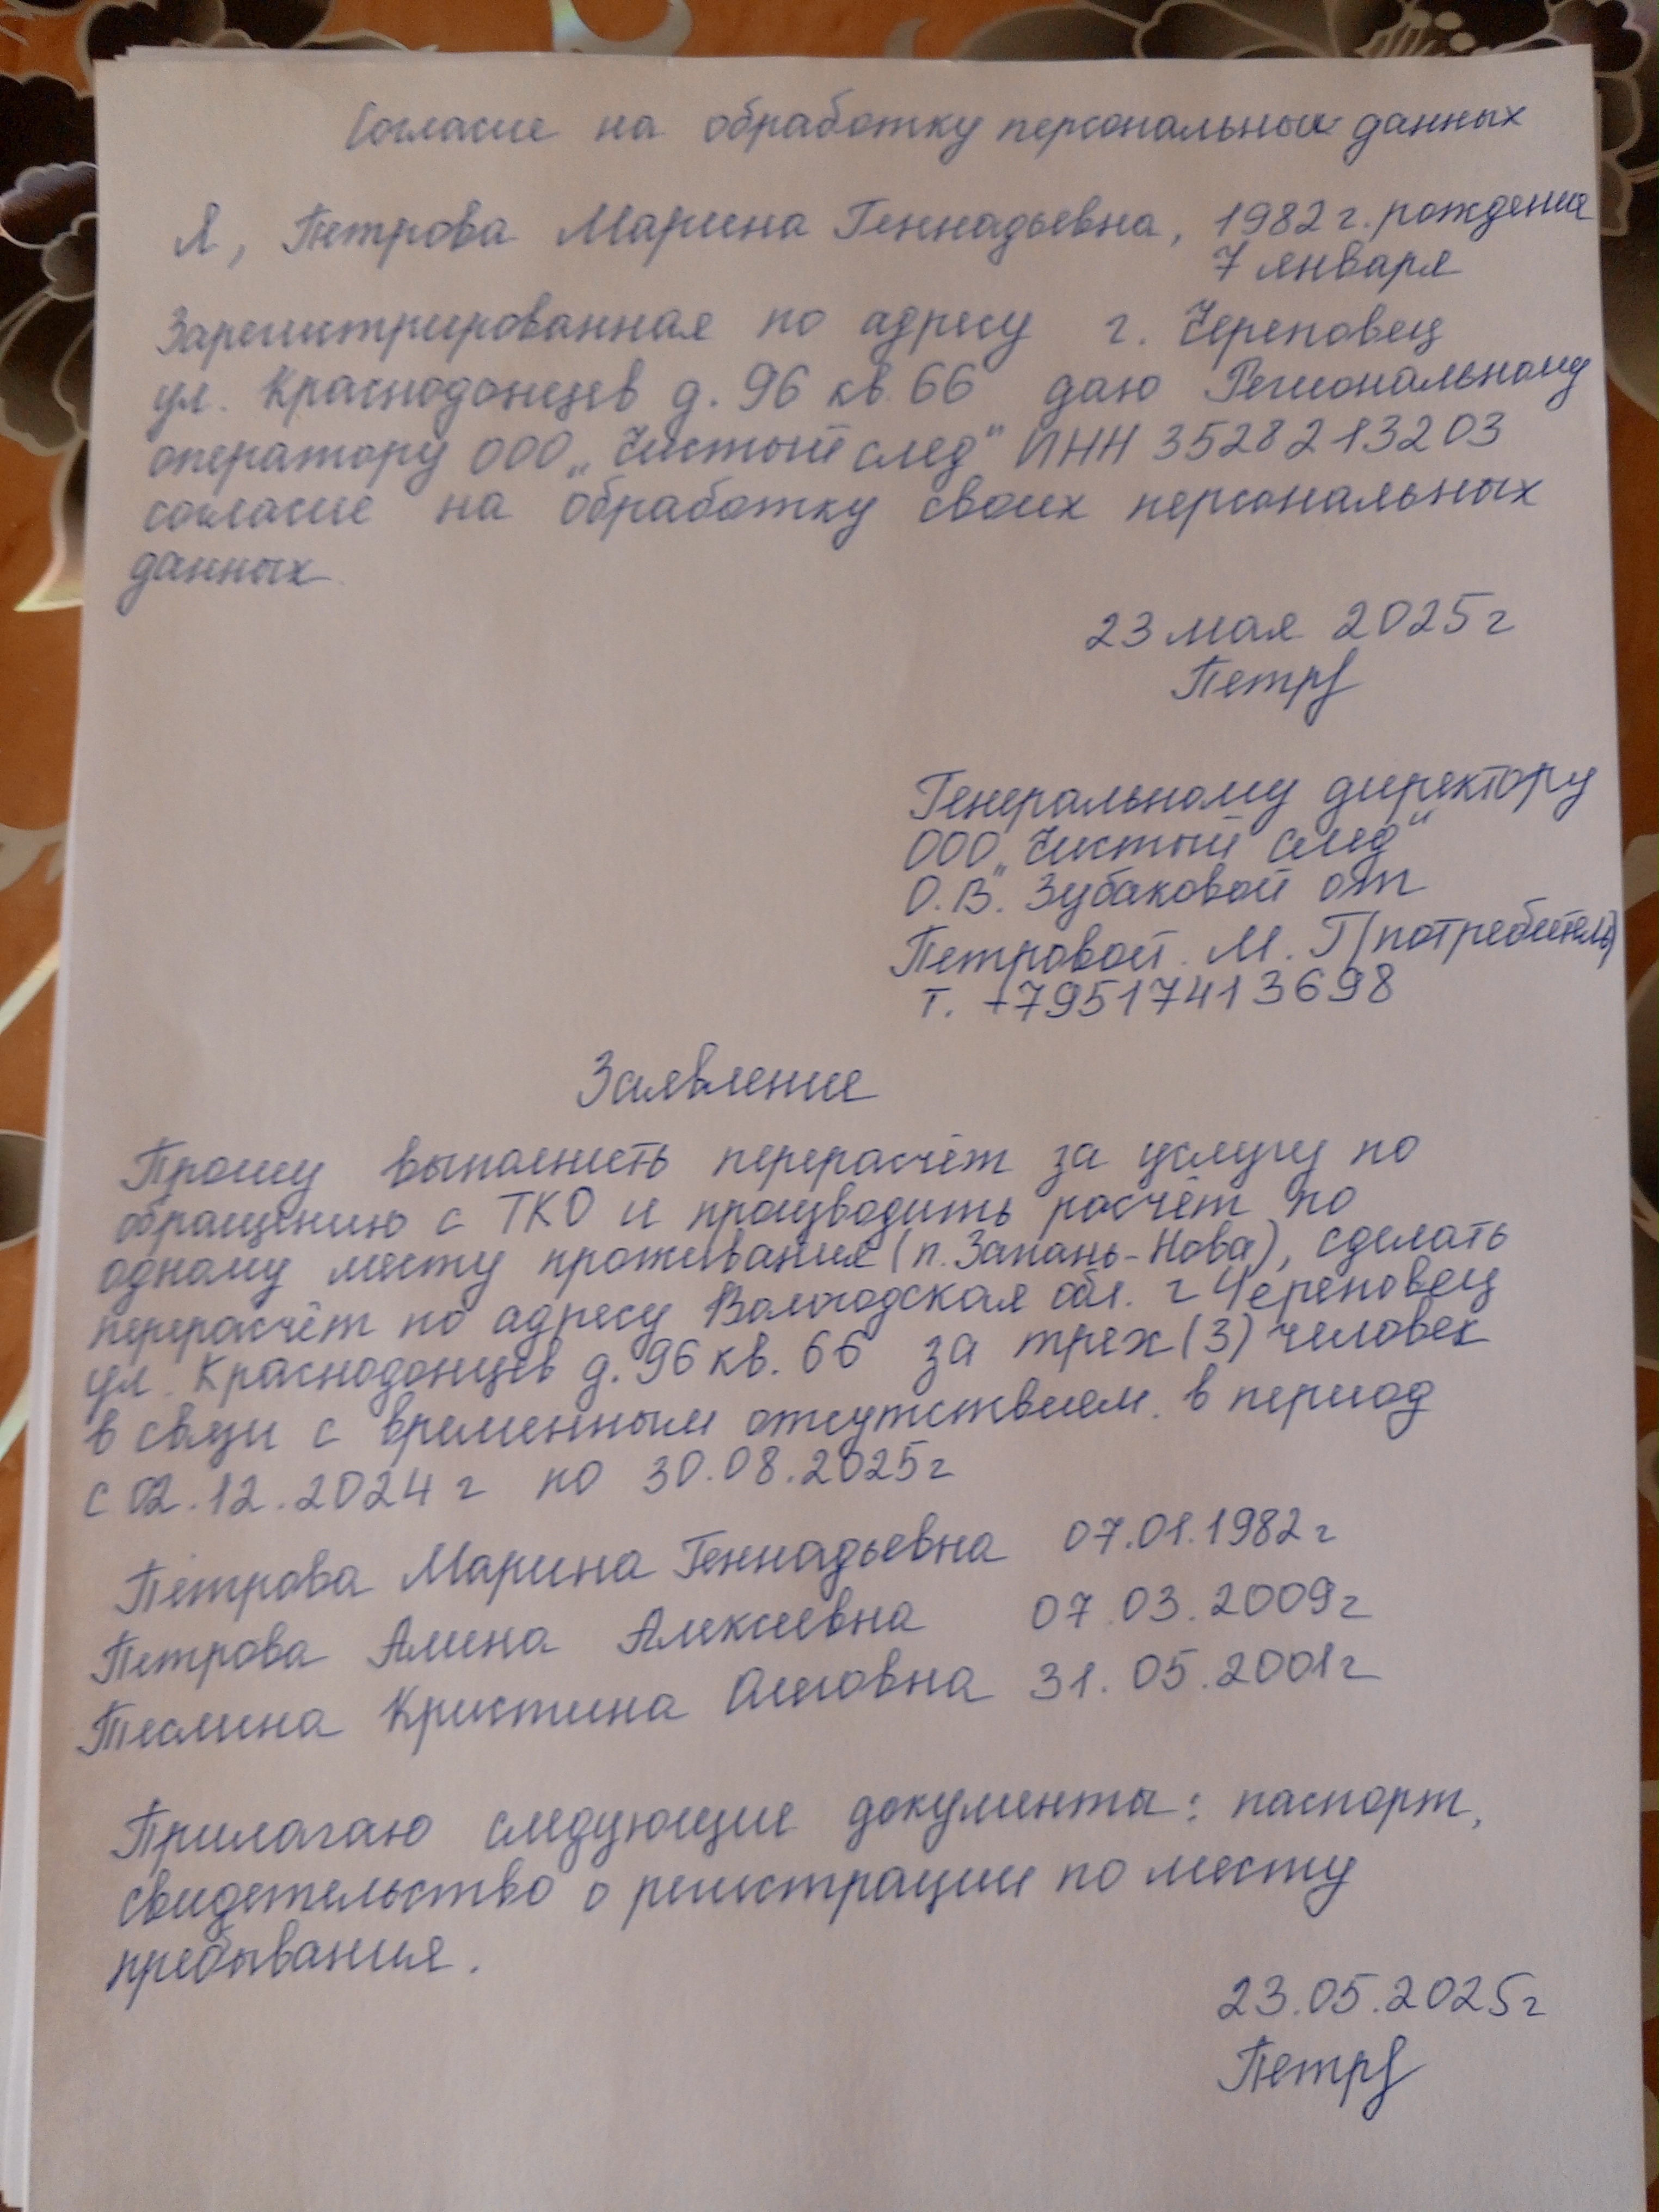 Согласие на обработку персональных данных
Я, Петрова Марина Геннадьевна, 1982 г. рождения
7 января
Зарегистрированная по адресу г. Череповец
ул. Краснодонцев д. 96 кв. 66 даю Региональному
оператору ООО „Чистый след" ИНН 3528213203
согласие на обработку своих персональных
данных
23 мая 2025 г
Петр
Генеральному директору
ООО „Чистый след"
О.В. Зубаковой от
Петровой М. Г (потребитель)
т. +79517413698
Заявление
Прошу выполнить перерасчёт за услугу по
обращению с ТКО и производить расчёт по
одному месту проживания (п. Запань-Нова), сделать
перерасчёт по адресу Вологодская обл. г Череповец
ул. Краснодонцев д. 96 кв. 66 за трех (3) человек
в связи с временным отсутствием в период
с 02.12.2024 г по 30.08.2025 г
Петрова Марина Геннадьевна 07.01.1982 г
Петрова Алина Алексеевна 07.03.2009 г
Теслина Кристина Олеговна 31.05.2001 г
Прилагаю следующие документы: паспорт,
свидетельство о регистрации по месту
пребывания.
23.05.2025 г
Петр